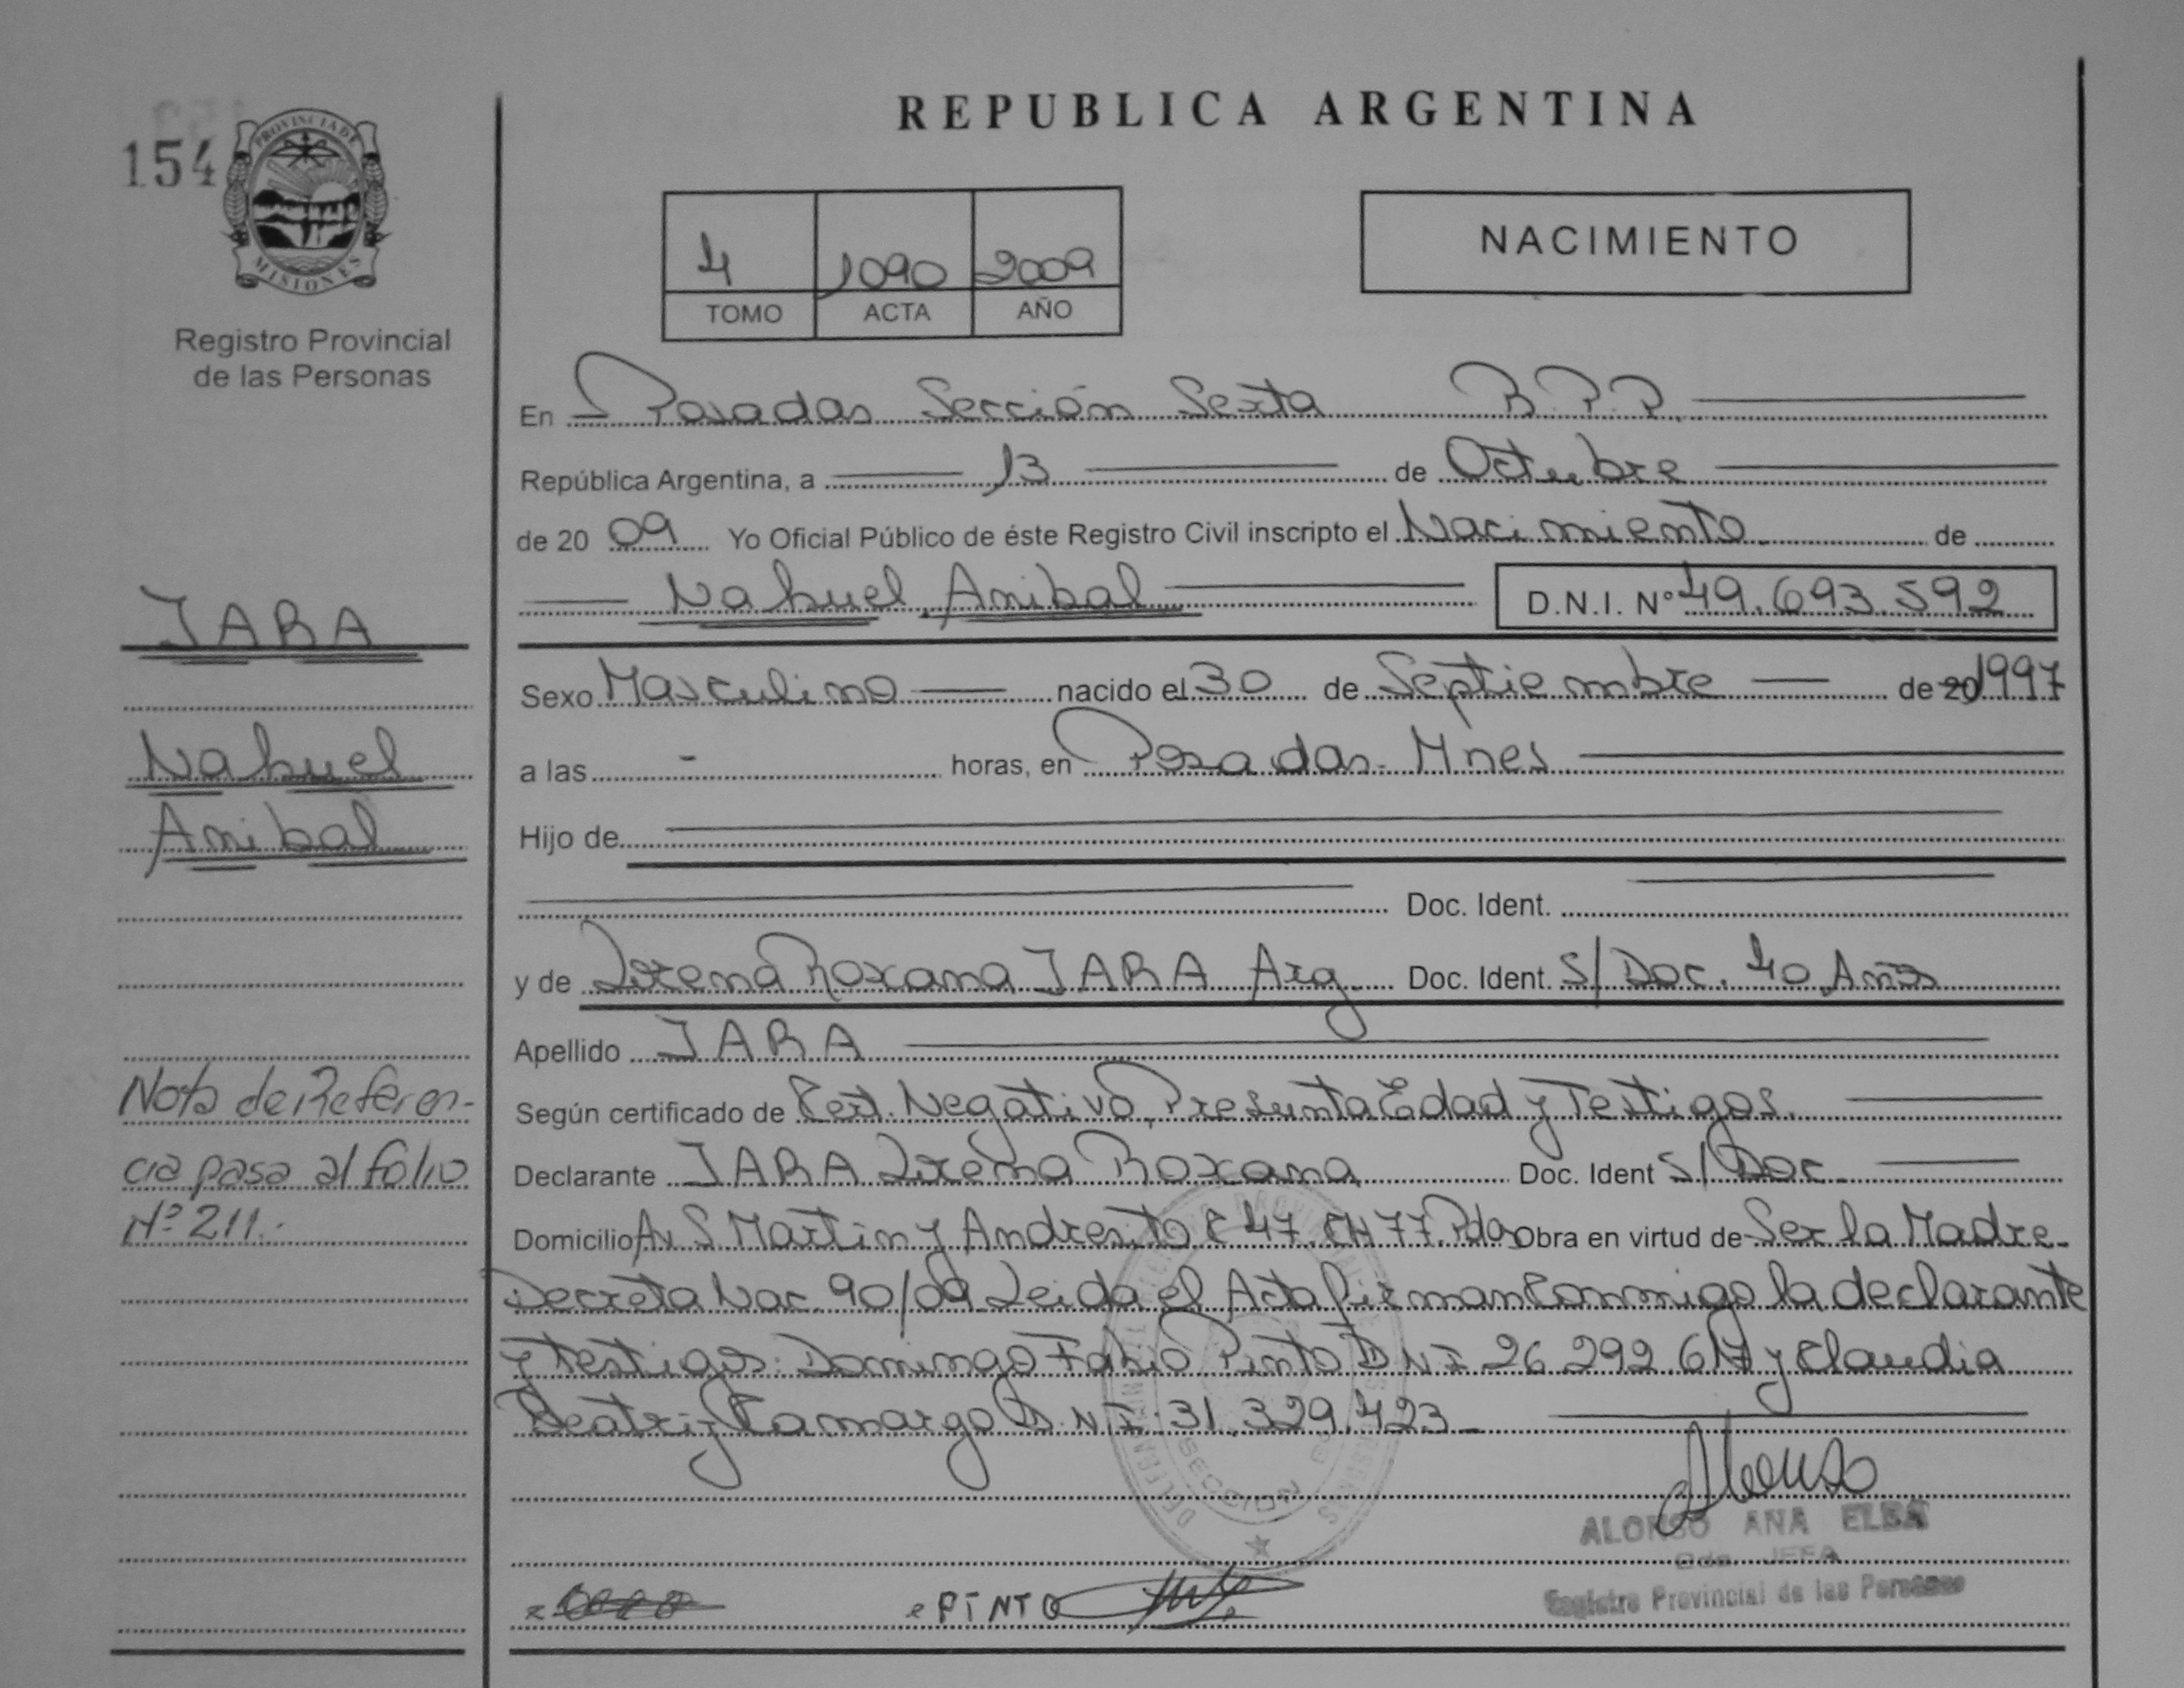 REPUBLICA ARGENTINA
154
PROVINCIA DE
MISIONES
Registro Provincial
de las Personas
4 1090 2009
TOMO ACTA AÑO
NACIMIENTO
En Posadas Sección Sexta R.P.P.
República Argentina, a 13 de Octubre
de 2009 Yo Oficial Público de éste Registro Civil inscripto el Nacimiento de
Nahuel Anibal D.N.I. N° 49.693.592
JARA
Nahuel
Anibal
Sexo Masculino nacido el 30 de Septiembre de 20 1997
a las - horas, en Posadas - Mnes
Hijo de
Doc. Ident.
y de Lorena Roxana JARA Arg Doc. Ident. S/Doc. 40 Años
Apellido JARA
Según certificado de Cert. Negativo, Presunta Edad y Testigos.
Declarante JARA Lorena Roxana Doc. Ident S/Doc.
Domicilio Av S Martin y Andresito C 47. CH 77. Pdas Obra en virtud de Ser la Madre-
Decreto Nac. 90/09 Leida el Acta firman Conmigo la declarante
y Testigos: Domingo Fabio Pinto D N I 26 292 617 y Claudia
Beatriz Camargo D. N I: 31.329.423
Nota de Referen-
cia pasa al folio
Nº 211.
SECCION
Alonso
ALONSO ANA ELBA
JEFA
Registro Provincial de las Personas
PINTO